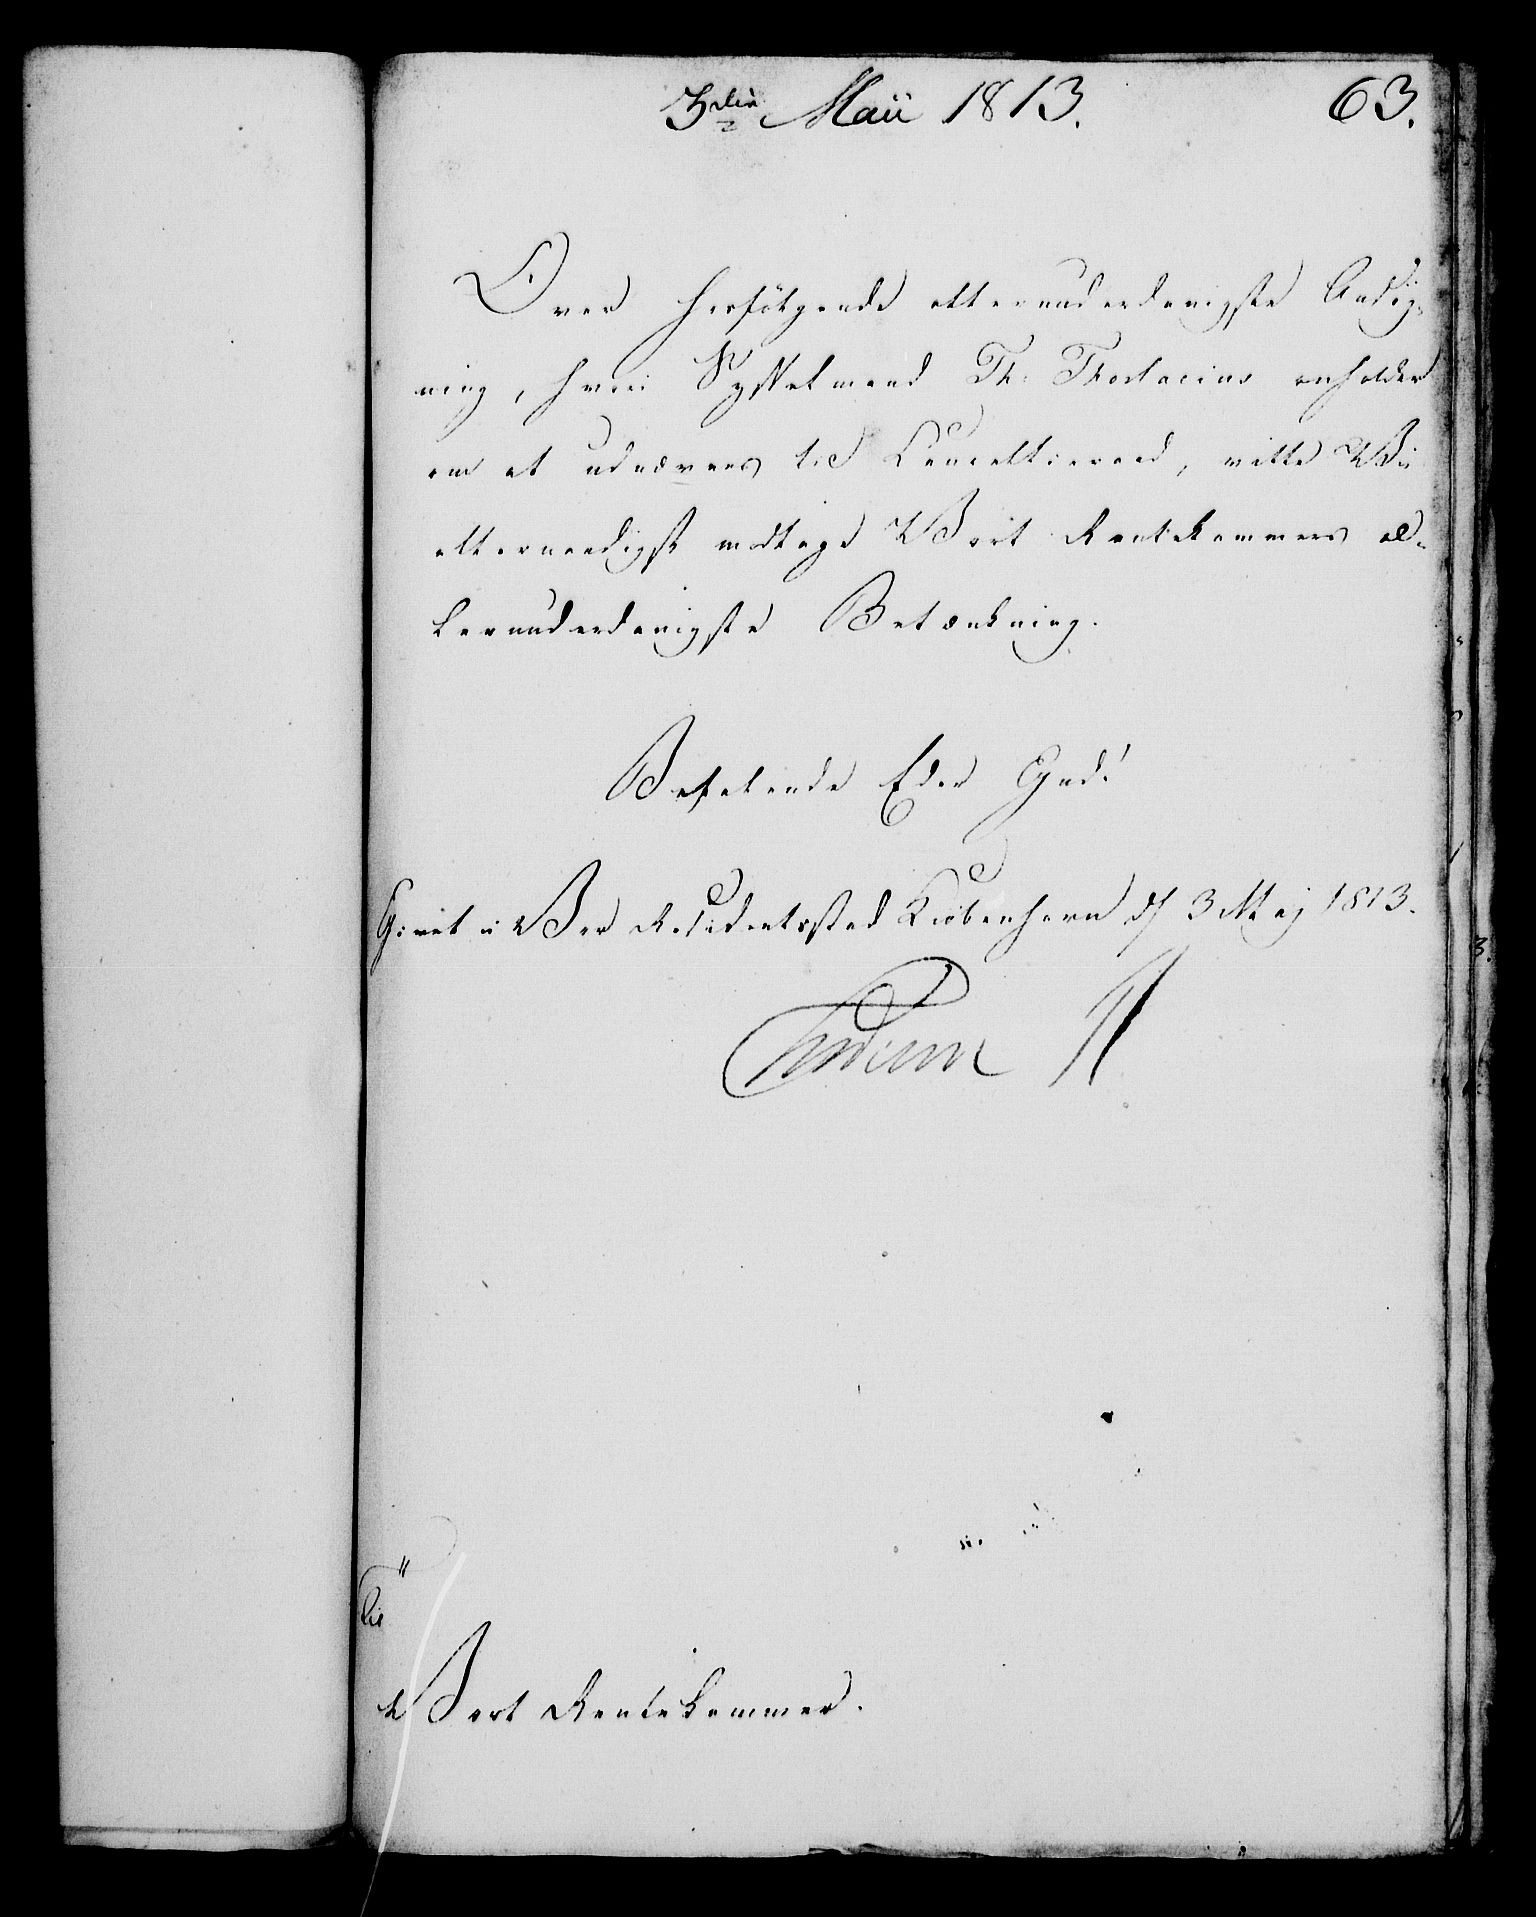 3die Maii 1813. 63.
Over hosfølgende allerunderdanigste Ansøg-
ning, hvori Sysselmand Th: Thorlacius anholder
om at udnævnes til Cancelliraad, ville Wii
allernaadigst modtage Vort Rentekammers al-
lerunderdanigste Betænkning.
Befalende Eder Gud!
Givet i Vor Residentsstad Kiøbenhavn d 3 Maj 1813.
Frederik R
Til
Vort Rentekammer.